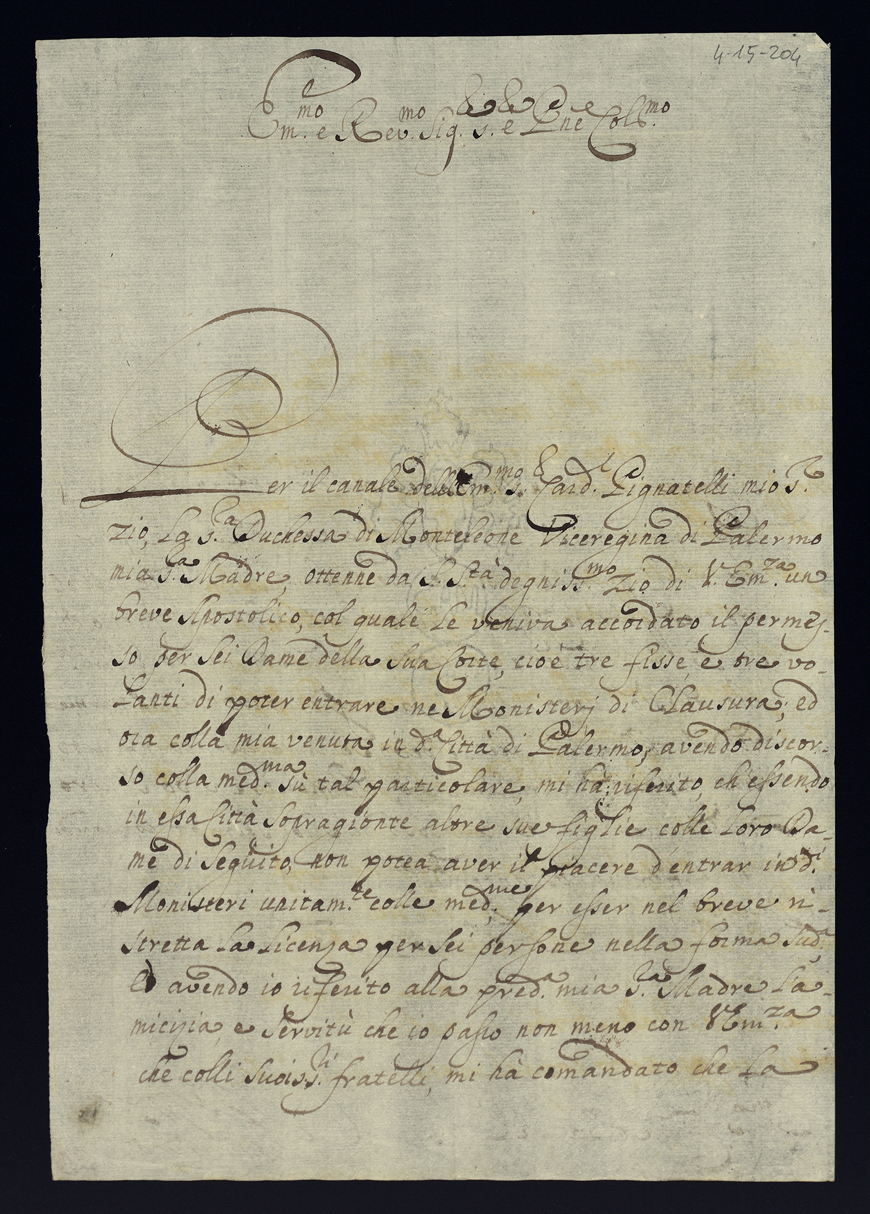 4-15-204
Em.mo e Rev.mo Sig. S.e e Pne Col.mo
Per il canale dell'Em.mo S. Card.l Pignatelli mio S.r
zio, La S.ra Duchessa di Monteleone Viceregina di Palermo
mia S.ra Madre, ottenne da S. Stà degniss.mo zio di V. Em.za un
breve Apostolico, col quale le veniva accordato il permes-
so per sei Dame della sua Corte, cioè tre fisse, e tre vo-
lanti di poter entrare ne Monisterj di Clausura; ed
ora colla mia venuta in d.a Città di Palermo, avendo discor-
so colla med.ma sù tal particolare, mi hà riferito, ch'essendo
in essa Città sopragionte altre sue figlie colle loro Da-
me di seguito, non potea aver il piacere d'entrar in d.i
Monisteri unitam.te colle med.me, per esser nel breve ri-
stretta la licenza per sei persone nella forma sud.a
Ed avendo io riferito alla pred.a mia S.ra Madre la-
micizia, e servitù che io passo non meno con V Em.za
che colli suoi S.ri fratelli, mi hà comandato che la